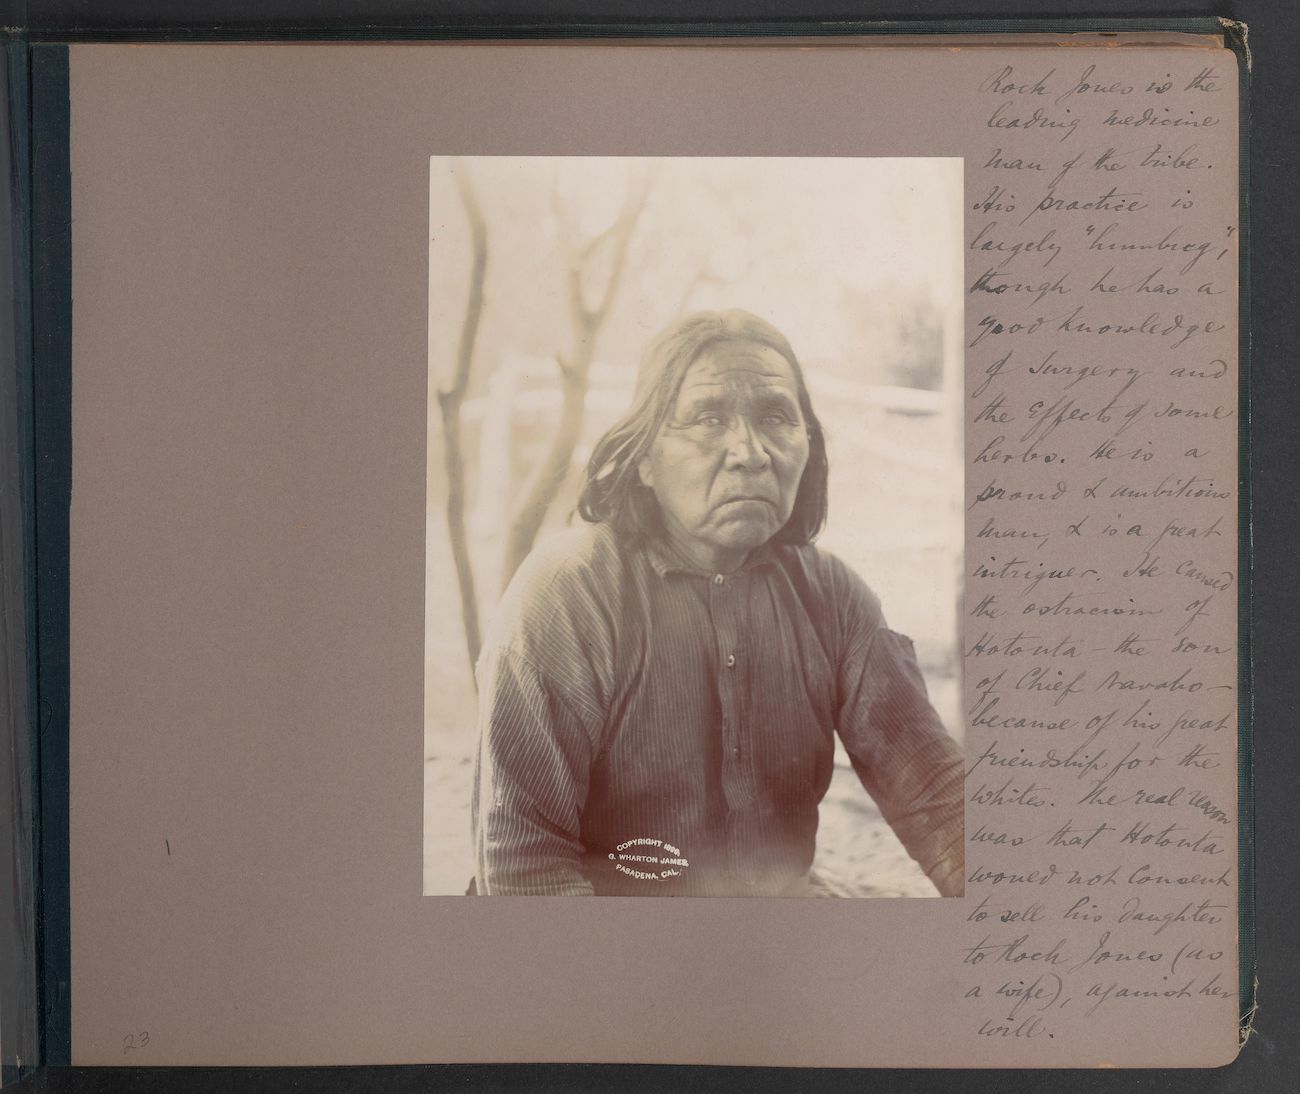 Rock Jones is the
leading medicine
man of the tribe.
His practice is
largely "humbug",
though he has a
good knowledge
of surgery and
the effects of some
herbs. He is a
proud & ambitious
man, & is a great
intriguer. He caused
the ostracism of
Hotouta - the son
of Chief Navaho -
because of his great
friendship for the
whites. The real reason
was that Hotouta
would not consent
to sell his daughter
to Rock Jones (as
a wife), against her
will.
COPYRIGHT 1899,
G. WHARTON JAMES,
PASADENA, CAL.
23